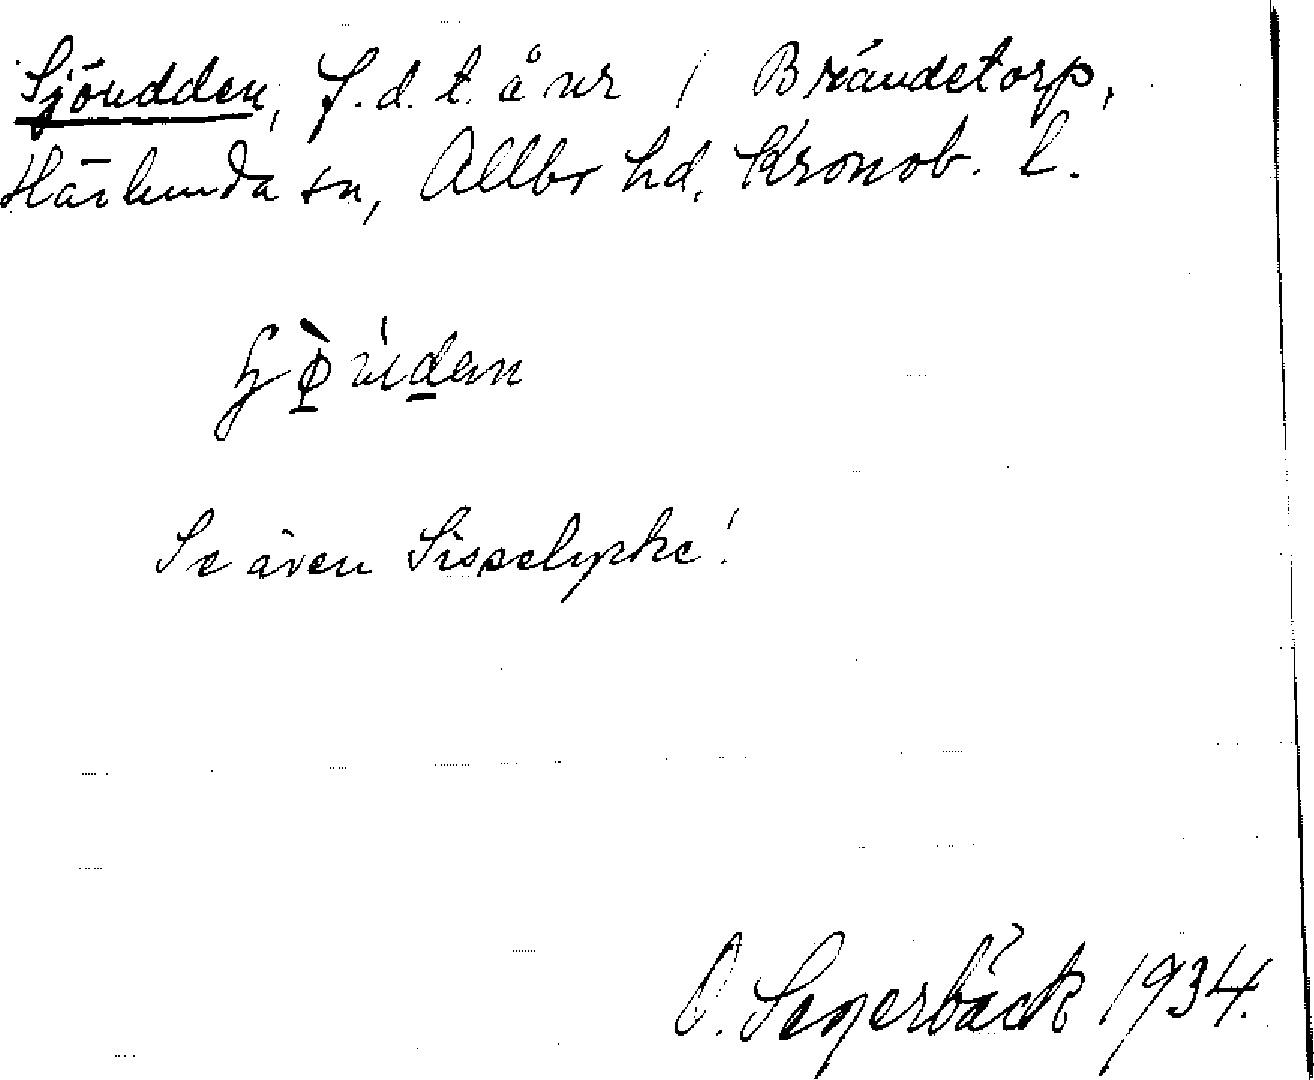 Sjöudden, f.d.t. å nr 1 Brändetorp,
Härlunda sn, Allbo hd, Kronob. l.
Se även Sisselycke!
O. Segerbäck 1934.